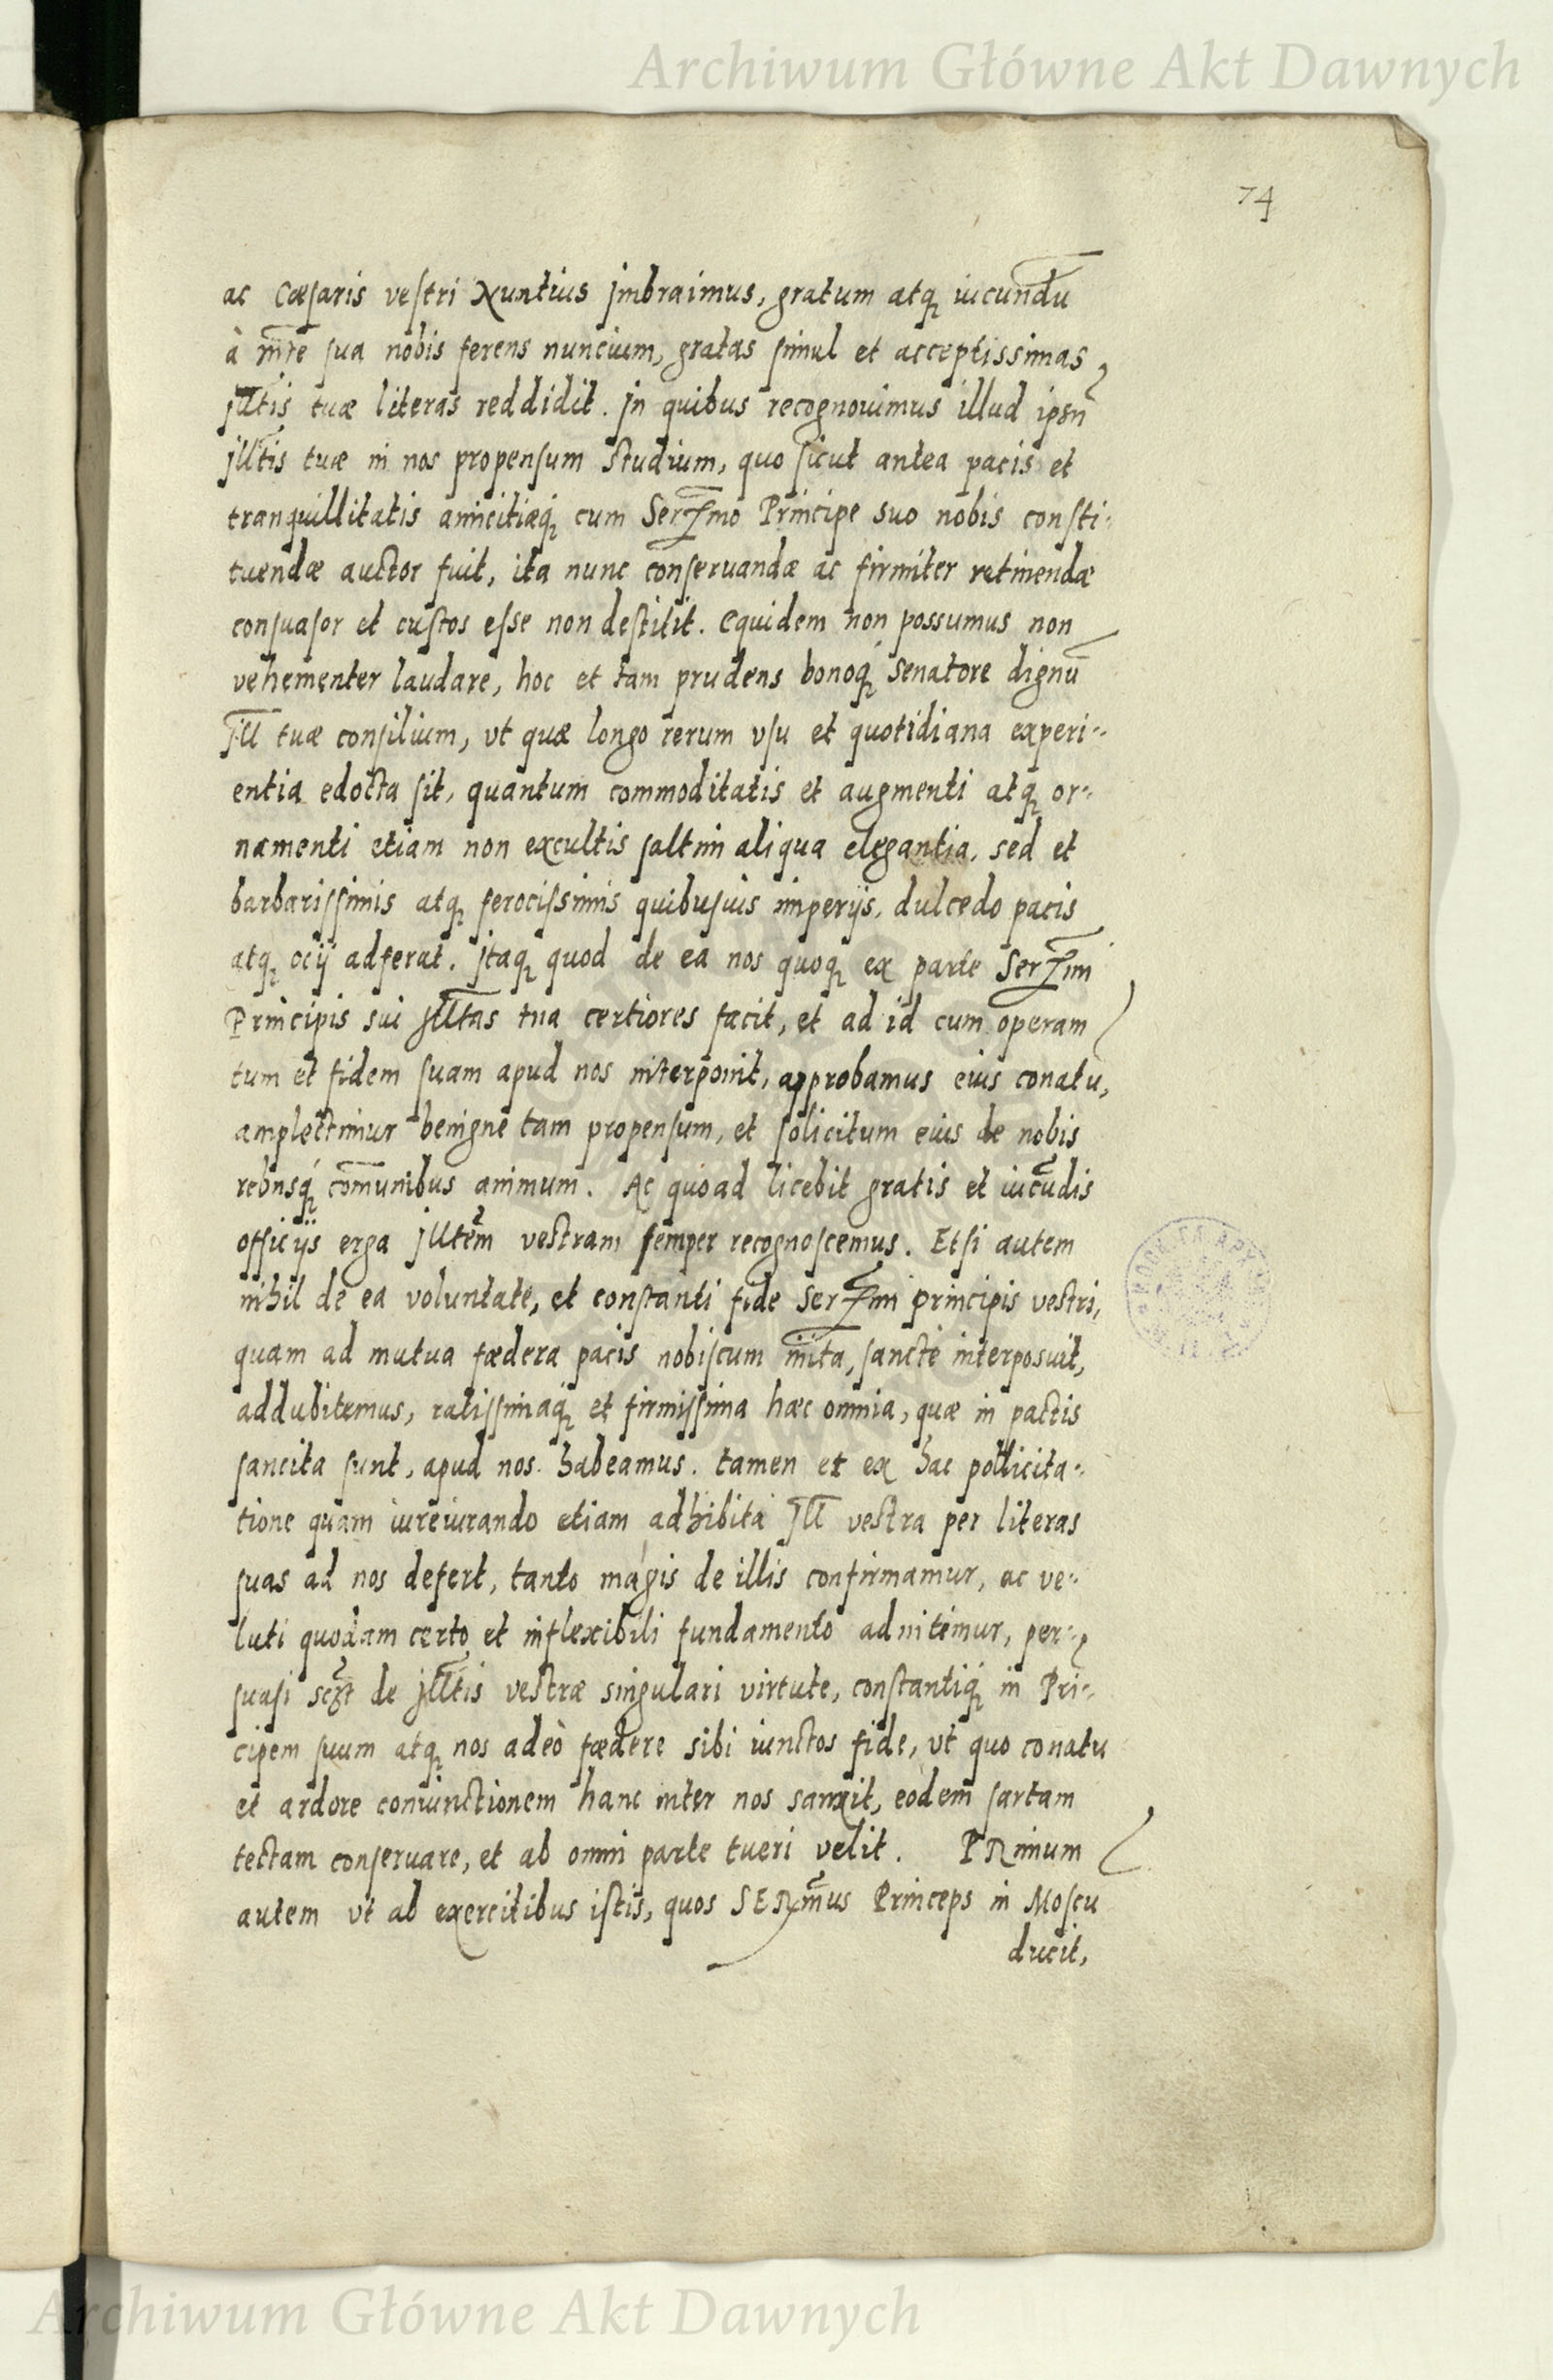 Archiwum Główne Akt Dawnych
74
ac Cæsaris vestri Nuntius Jmbraimus, gratum atq̃ iucundū
à mt̄e sua nobis ferens nuncium, gratas simul et acceptissimas
jllt̄is tuæ literas reddidit. Jn quibus recognouimus illud ipsū
jllt̄is tuæ in nos propensum studium, quo sicut antea pacis et
tranquillitatis amicitiæq̃ cum Ser̄mo Principe suo nobis consti-
tuendæ auctor fuit, ita nunc conseruandæ ac firmiter retinendæ
consuasor et custos esse non destitit. Equidem non possumus non
vehementer laudare, hoc et tam prudens bonoq̃ senatore dignū
Jll̄ tuæ consilium, vt quæ longo rerum vsu et quotidiana experi-
entia edocta sit, quantum commoditatis et augmenti atq̃ or-
namenti etiam non excultis saltim aliqua elegantia, sed et
barbarissimis atq̃ ferocissimis quibusuis imperijs, dulcedo pacis
atq̃ ocij adferat. Jtaq̃ quod de ea nos quoq̃ ex parte Ser̄mi
Principis sui Jllt̄as tua certiores facit, et ad id cum operam
tum et fidem suam apud nos interponit, approbamus eius conatu,
amplectimur benigne tam propensum, et solicitum eius de nobis
rebusq̃ com̄unibus animum. Ac quoad licebit gratis et iucūdis
officijs erga jllt̄em vestram semper recognoscemus. Etsi autem
nihil de ea voluntate, et constanti fide Ser̄mi principis vestri,
quam ad mutua fædera pacis nobiscum inita, sancte interposuit,
addubitemus, ratissimaq̃ et firmissima hæc omnia, quæ in pactis
sancita sunt, apud nos habeamus. tamen et ex hac pollicita-
tione quam iureiurando etiam adhibita Jll̄ vestra per literas
suas ad nos defert, tanto magis de illis confirmamur, ac ve-
luti quodam certo et inflexibili fundamento adnitimur, per-
suasi sc̄zt de jllt̄is vestræ singulari virtute, constantiq̃ in Pri-
cipem suum atq̃ nos adeò fædere sibi iunctos fide, vt quo conatu
et ardore coniunctionem hanc inter nos sanxit, eodem sartam
tectam conseruare, et ab omni parte tueri velit. PRimum
autem vt ab exercitibus istis, quos SERm̄us Princeps in Moscu
ducit,
Archiwum Główne Akt Dawnych